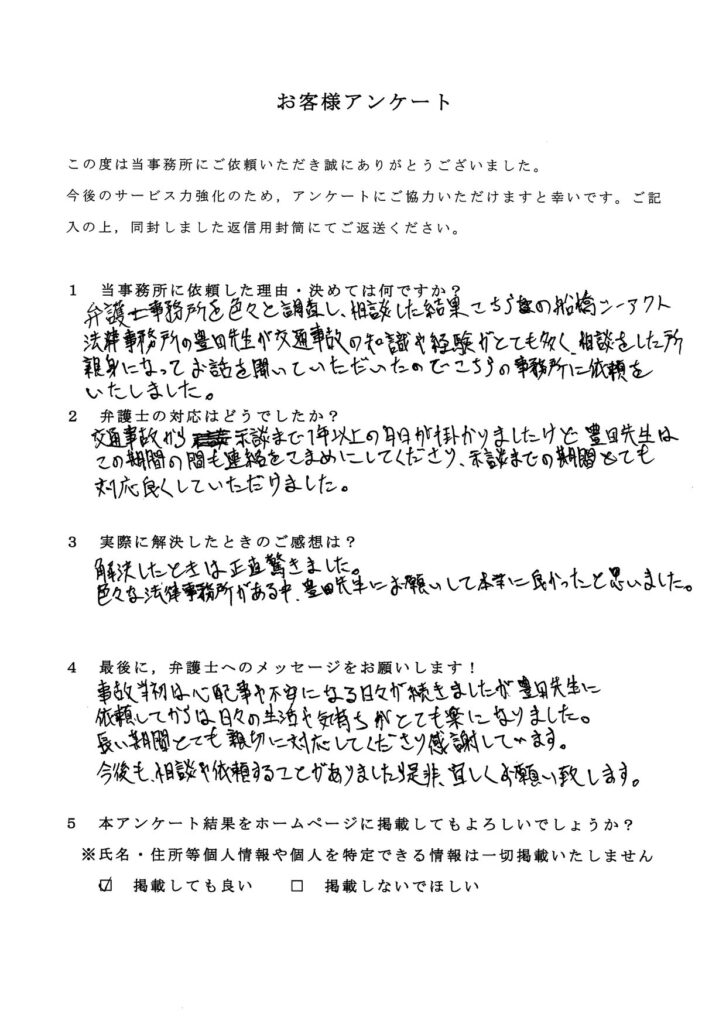 お客様アンケート
この度は当事務所にご依頼いただき誠にありがとうございました。
今後のサービス力強化のため，アンケートにご協力いただけますと幸いです。ご記
入の上，同封しました返信用封筒にてご返送ください。
1　当事務所に依頼した理由・決めては何ですか？
弁護士事務所を色々と調査し、相談した結果こちらの船橋シーアクト
法律事務所の豊田先生が交通事故の知識や経験がとても多く、相談をした所
親身になってお話を聞いていただいたのでこちらの事務所に依頼を
いたしました。
2　弁護士の対応はどうでしたか？
交通事故から示談まで1年以上の月日が掛かりましたけど豊田先生は
この期間の間も連絡をこまめにしてくださり、示談までの期間とても
対応良くしていただけました。
3　実際に解決したときのご感想は？
解決したときは正直驚きました。
色々な法律事務所がある中、豊田先生にお願いして本当に良かったと思いました。
4　最後に，弁護士へのメッセージをお願いします！
事故当初は心配事や不安になる日々が続きましたが豊田先生に
依頼してからは日々の生活や気持ちがとても楽になりました。
長い期間とても親切に対応してくださり感謝しています。
今後も、相談や依頼することがありましたら是非、宜しくお願い致します。
5　本アンケート結果をホームページに掲載してもよろしいでしょうか？
※氏名・住所等個人情報や個人を特定できる情報は一切掲載いたしません
☑　掲載しても良い　　□　掲載しないでほしい